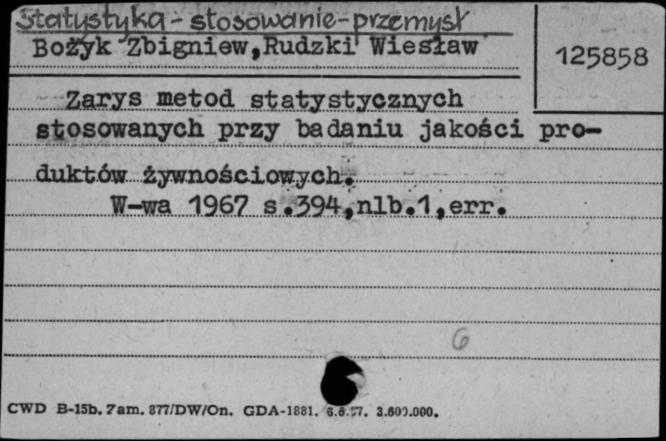 Statystyka - stosowanie - przemysł
Bożyk Zbigniew,Rudzki Wiesław
125858
Zarys metod statystycznych
stosowanych przy badaniu jakości pro-
duktów żywnościowych.
W-wa 1967 s.394,nlb.1,err.
6
CWD B-15b. Zam. 877/DW/On. GDA-1881. 3.600.000.